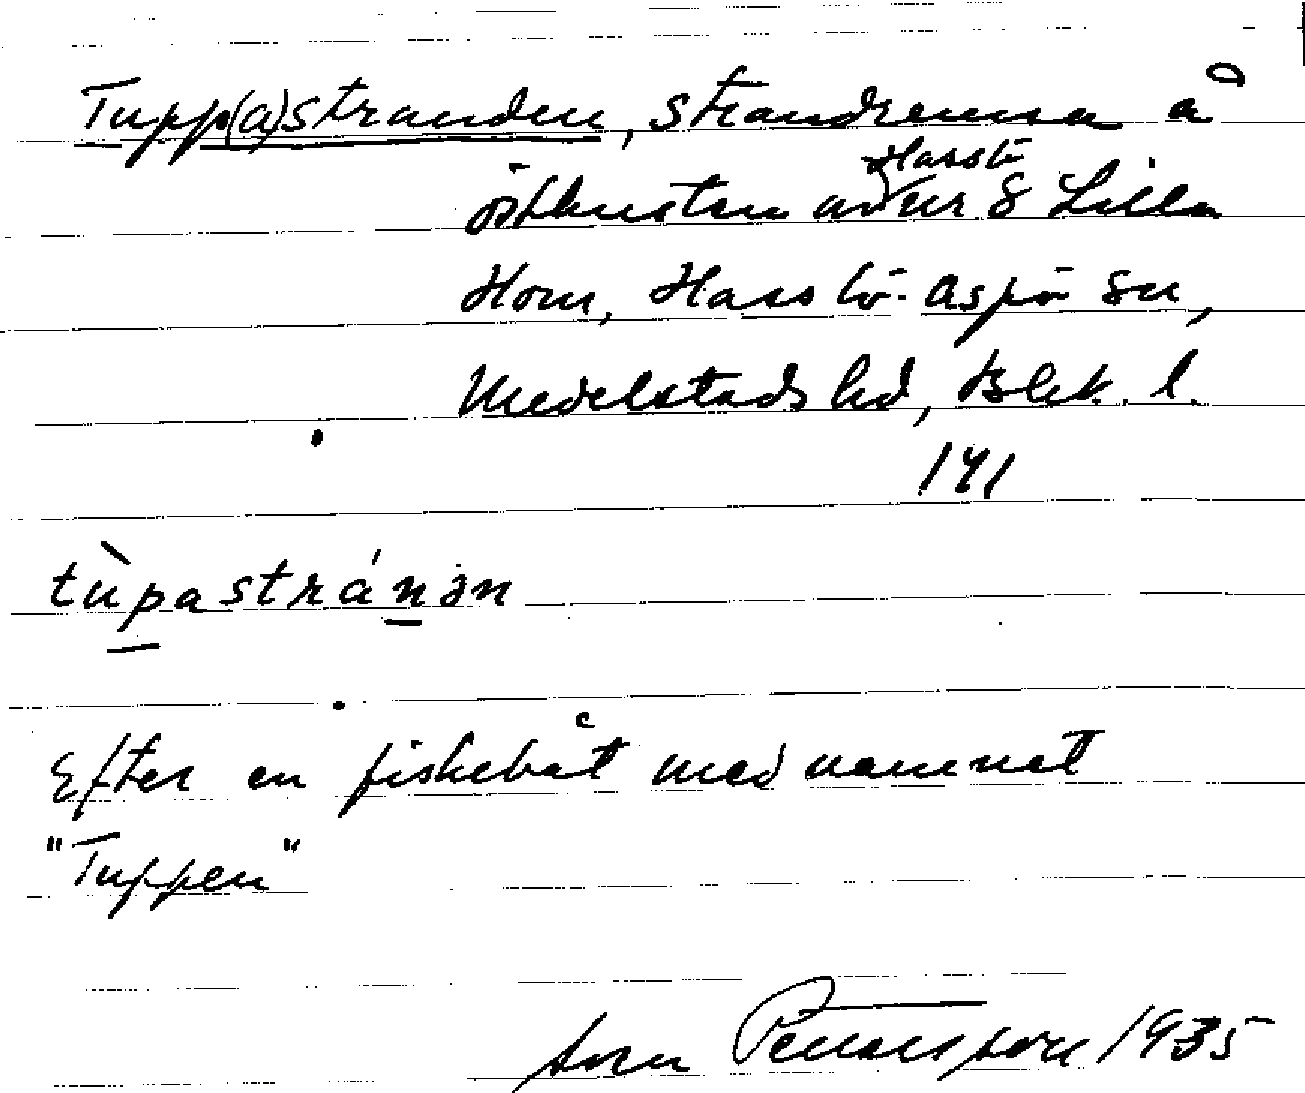 Tupp(a)stranden, strandremsa å
östkusten av Hasslö ur 8 Lilla
Horn, Hasslö-Aspö sn,
Medelstads hd, Blek. l.
141
tùpastránən
Efter en fiskebåt med namnet
"Tuppen"
Pettersson 1935